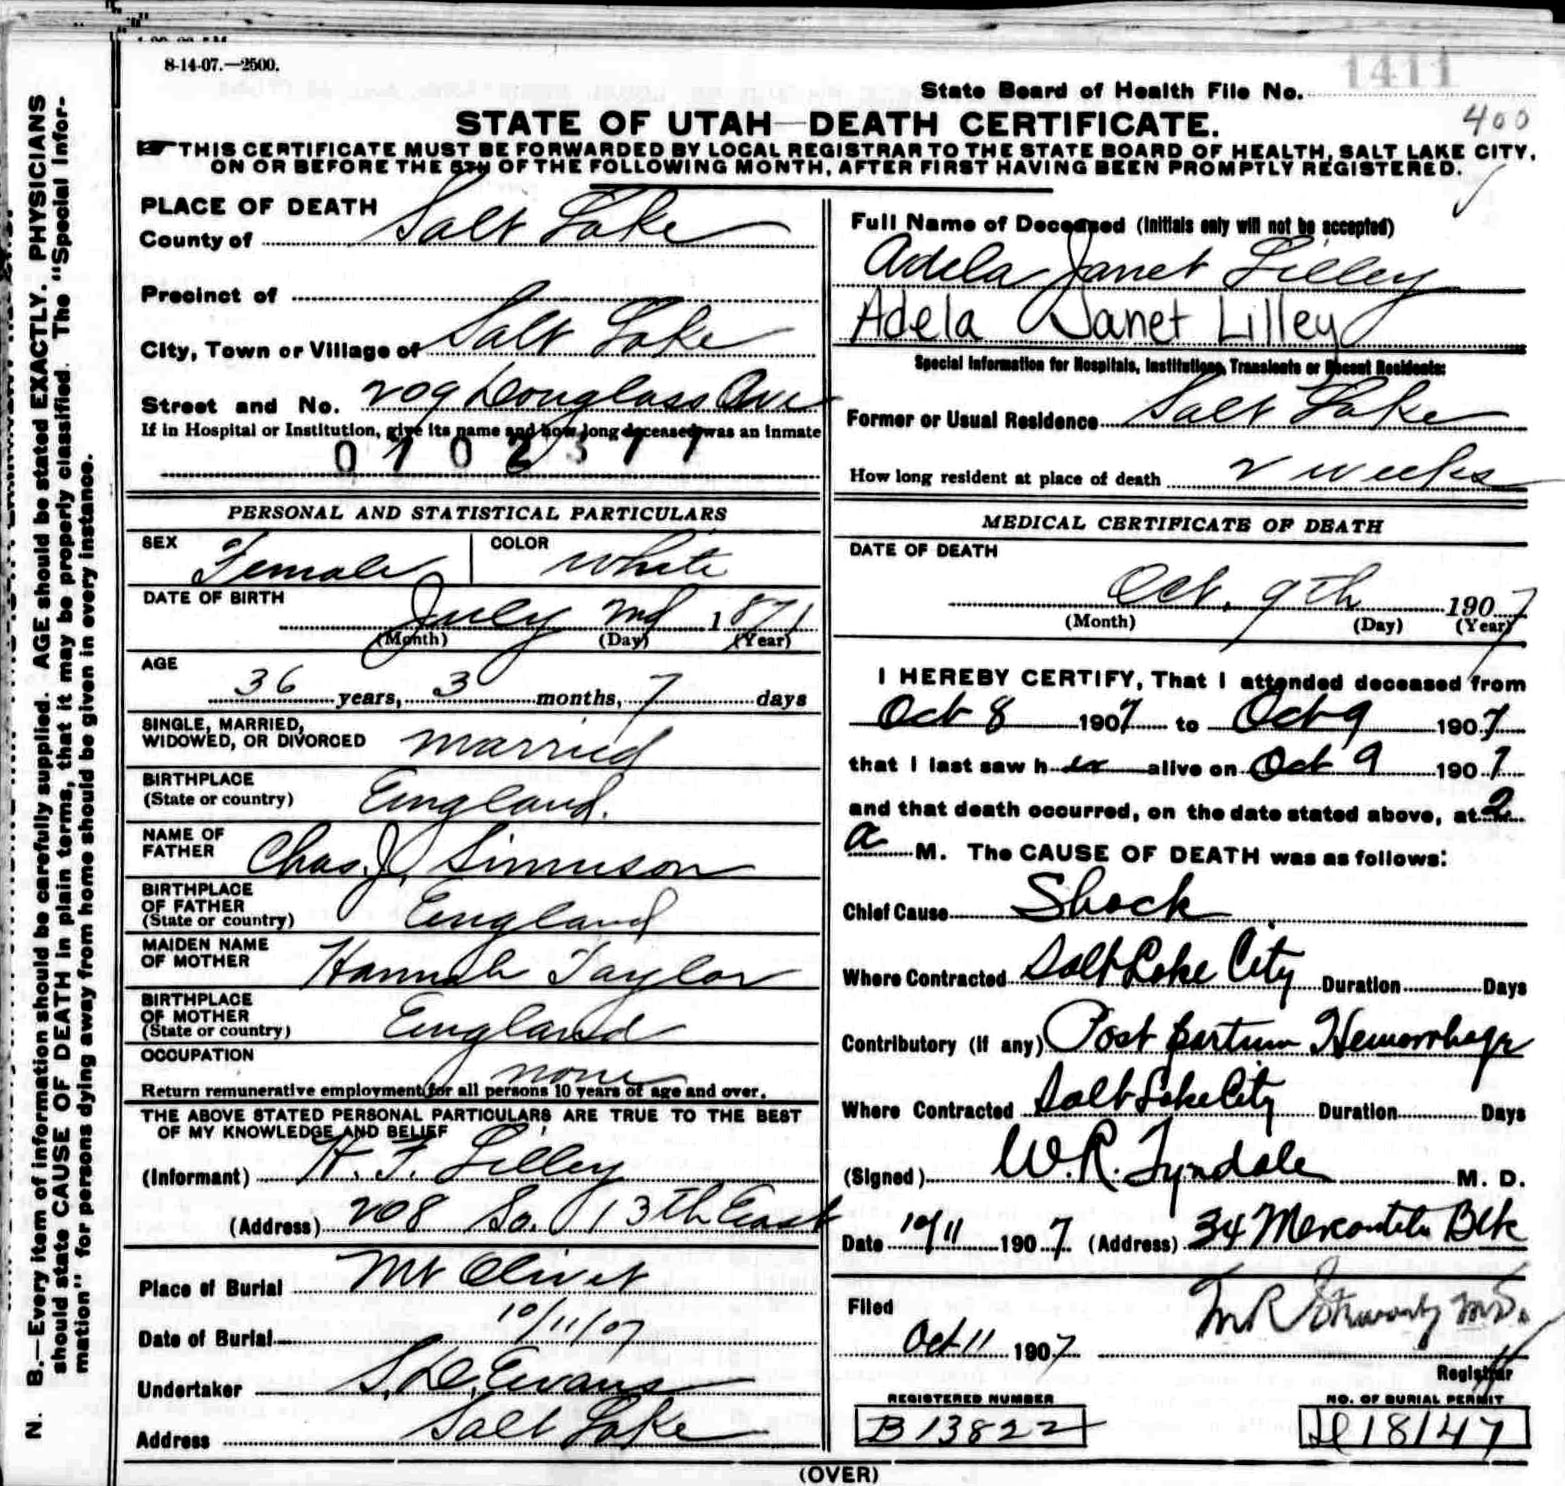 8-14-07.—2500.
1411
State Board of Health File No.
400
STATE OF UTAH—DEATH CERTIFICATE.
THIS CERTIFICATE MUST BE FORWARDED BY LOCAL REGISTRAR TO THE STATE BOARD OF HEALTH, SALT LAKE CITY,
ON OR BEFORE THE 5TH OF THE FOLLOWING MONTH, AFTER FIRST HAVING BEEN PROMPTLY REGISTERED.
N. B.—Every item of information should be carefully supplied. AGE should be stated EXACTLY. PHYSICIANS
should state CAUSE OF DEATH in plain terms, that it may be properly classified. The "Special Infor-
mation" for persons dying away from home should be given in every instance.
PLACE OF DEATH
County of Salt Lake
Precinct of
City, Town or Village of Salt Lake
Street and No. 209 Douglass Ave
If in Hospital or Institution, give its name and how long deceased was an inmate
PERSONAL AND STATISTICAL PARTICULARS
SEX Female COLOR White
DATE OF BIRTH July 2nd 1871
(Month) (Day) (Year)
AGE
36 years, 3 months, 7 days
SINGLE, MARRIED,
WIDOWED, OR DIVORCED married
BIRTHPLACE
(State or country) England.
NAME OF
FATHER Chas. J. Simmson
BIRTHPLACE
OF FATHER
(State or country) England
MAIDEN NAME
OF MOTHER Hannah Taylor
BIRTHPLACE
OF MOTHER
(State or country) England
OCCUPATION none
Return remunerative employment for all persons 10 years of age and over.
THE ABOVE STATED PERSONAL PARTICULARS ARE TRUE TO THE BEST
OF MY KNOWLEDGE AND BELIEF
(Informant) H. F. Lilley
(Address) 208 So. 13th East
Place of Burial Mt Olivet
Date of Burial 10/11/07
Undertaker S. D. Evans
Address Salt Lake
Full Name of Deceased (Initials only will not be accepted)
Adela Janet Lilley
Adela Janet Lilley
Special Information for Hospitals, Institutions, Transients or Recent Residents:
Former or Usual Residence Salt Lake
How long resident at place of death 2 weeks
MEDICAL CERTIFICATE OF DEATH
DATE OF DEATH
Oct. 9th 1907
(Month) (Day) (Year)
I HEREBY CERTIFY, That I attended deceased from
Oct 8 1907 to Oct 9 1907
that I last saw her alive on Oct 9 1907
and that death occurred, on the date stated above, at 2
a M. The CAUSE OF DEATH was as follows:
Chief Cause Shock
Where Contracted Salt Lake City Duration Days
Contributory (if any) Post partum Hemorrhage
Where Contracted Salt Lake City Duration Days
(Signed) W. R. Tyndale M. D.
Date 10/11 1907 (Address) 34 Mercantile Blk
Filed
Oct 11 1907
Registrar
REGISTERED NUMBER
B 13822
NO. OF BURIAL PERMIT
18147
(OVER)